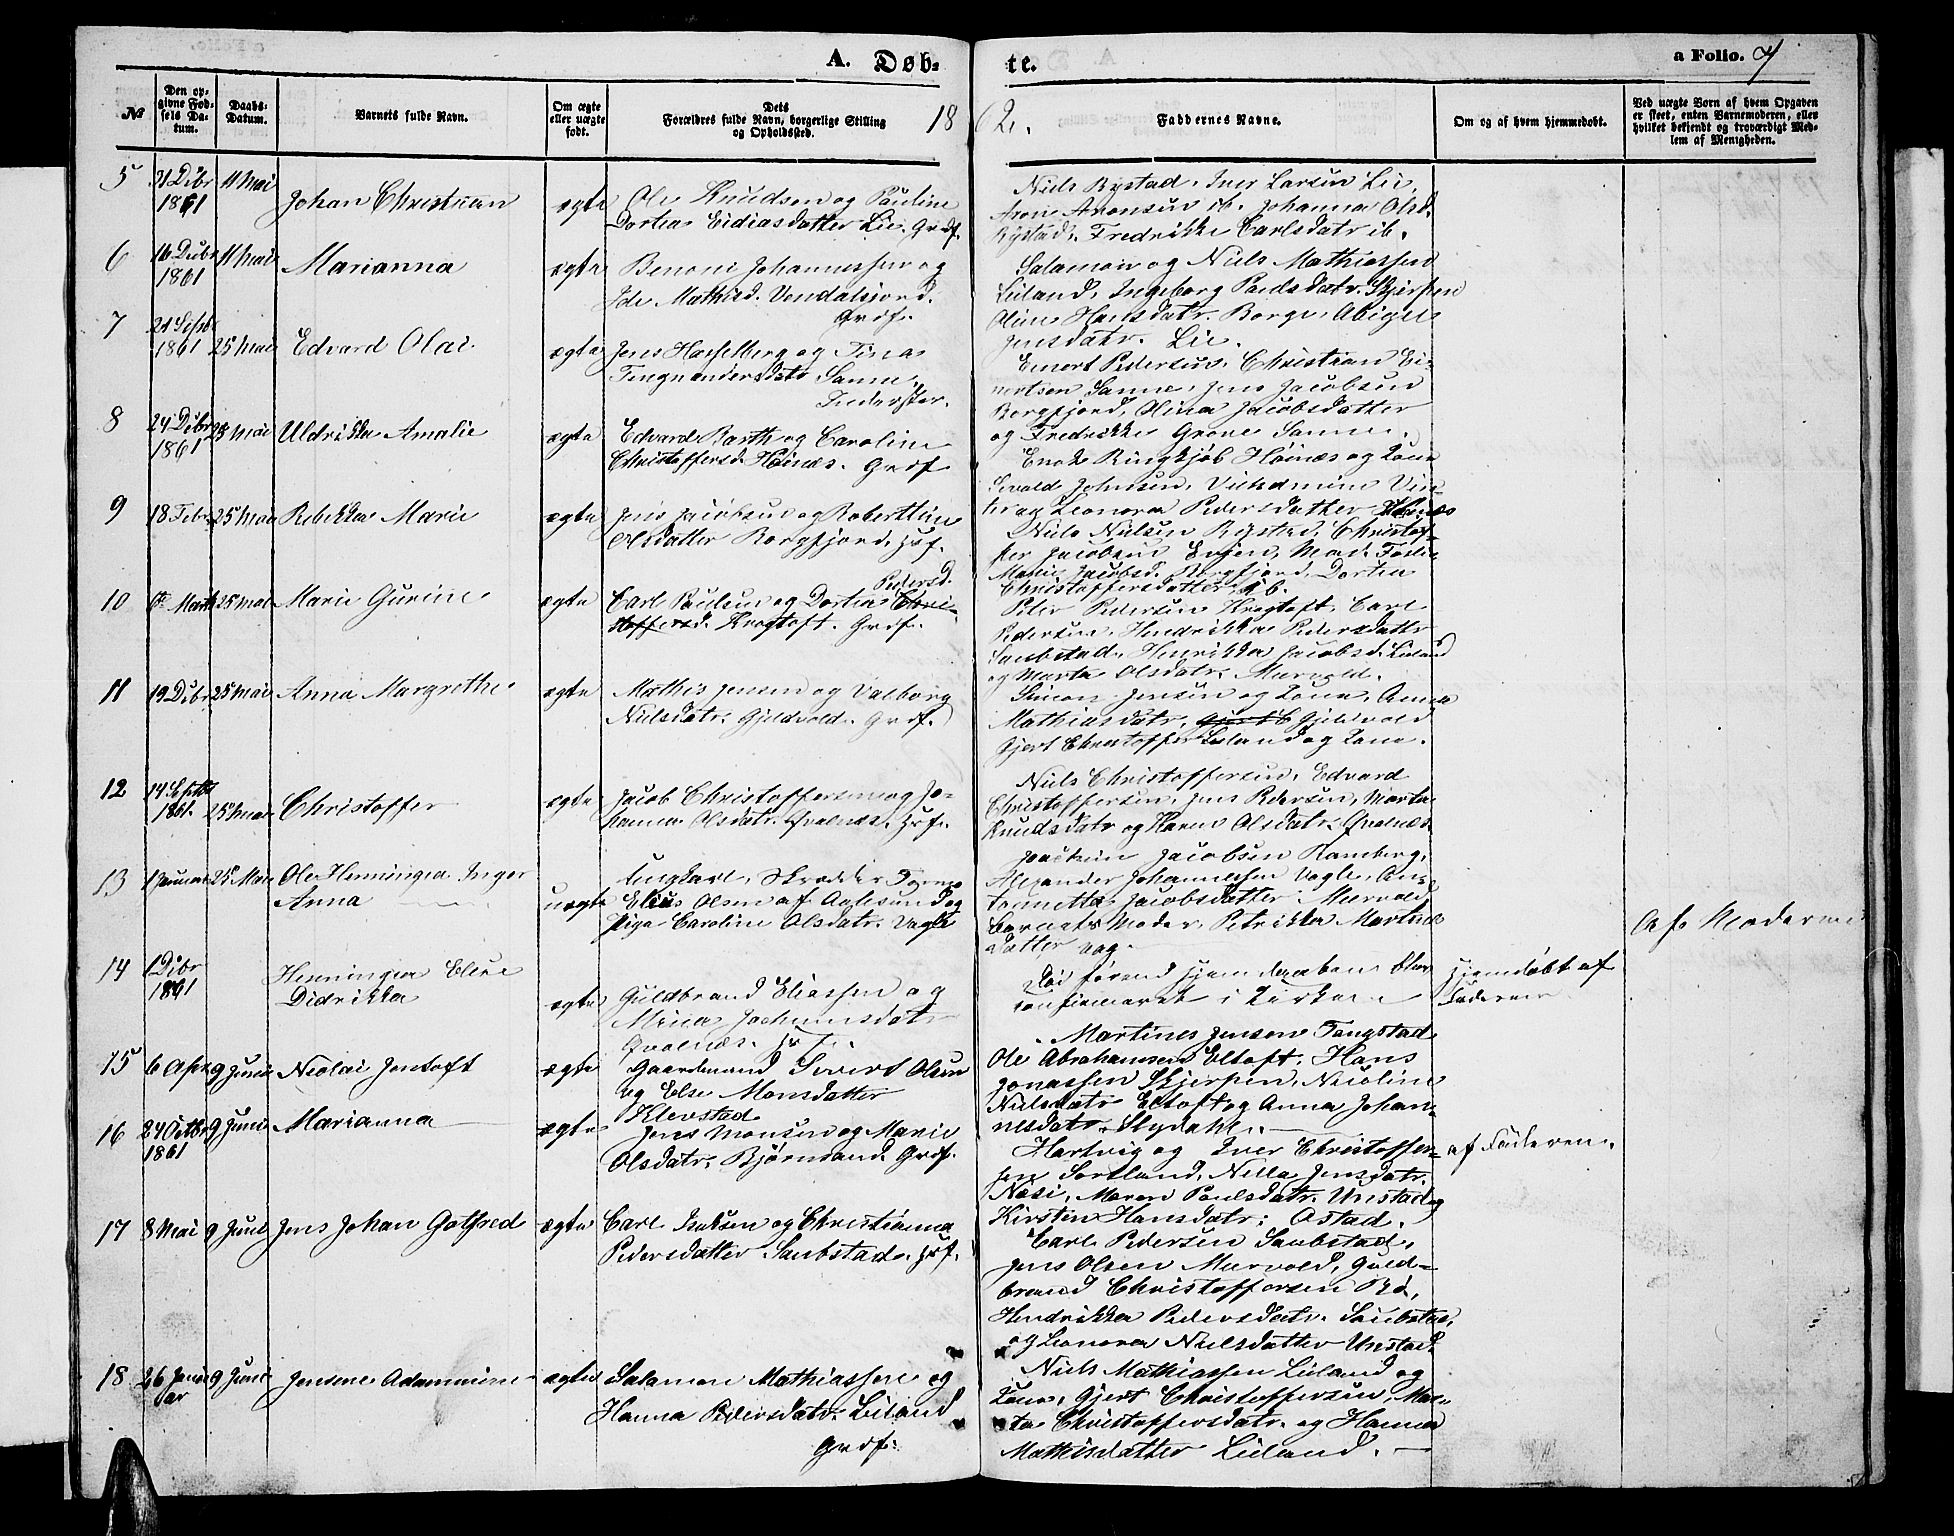 A. Døb-
te.
a Folio. 7
№
Den op-
givne Fød-
sels Da-
tum.
Daabs-
Datum.
Barnets fulde Navn.
Om ægte
eller uægte
født.
Dets
Forældres fulde Navn, borgerlige Stilling
og Opholdssted.
1862.
Faddernes Navne.
Om og af hvem hjemmedøbt.
Ved uægte Børn af hvem Opgaven
er skeet, enten Barnemoderen, eller
hvilket bekjendt og troværdigt Med-
lem af Menigheden.
5
31 Dcbr
1861
11 Mai
Johan Christian
ægte
Ole Knudsen og Pauline
Dortea Eidiasdatter Lie. Grdf.
Niels Rystad, Iver Larsen Lie,
Arone Aronsen ib. Johanna Olsd.
Rystad. Fredrikke Carlsdatr ib.
6
16 Dcbr
1861
11 Mai
Marianna
ægte
Benoni Johannessen og
Ide Mathisd. Vendalsjord.
Grdf.
Salamon og Niels Mathiassen
Leland, Ingeborg Paulsdatr. Skjerpen
Oline Hansdatr. Borge, Abigel
Jensdatr. Lie.
7
21 Septb
1861
25 Mai
Edvard Olai
ægte
Jens Hasselberg og Tina
Tingnandersdatr Sanne,
Enert Pedersen, Christian Ei-
nertsen Sanne, Jens Jacobsen
Borgfjord, Olina Jacobsdatter
og Fredrikke Grove Sanne.
8
24 Dcbr
1861
25 Mai
Uldrikka Amalie
ægte
Edvard Barth og Caroline
Christoffersd. Høines. Grdf
Enok Ringkjøb Høinæs og Kone
Sevald Johnsen, Vilhelmine Vin-
ter og Leonora Pedersdatter Høinæs
9
18 Febr.
25 Mai
Rebekka Marie
ægte
Jens Jacobsen og Roberthine
Olsdatter Borgfjord. Hsf.
Niels Nielsen Rystad, Christof-
fer Jacobsen Evjen, Mad.
Marie Jacobsd. Borgfjord, Dortea
Christoffersdatter ib.
10
Marts
25 Mai
Marie Gurine
ægte
Pedersd.
Carl Paulsen og Dortea Chri-
stoffersd. Krogtoft. Grdf.
Peter Pedersen Krogtoft. Carl
Pedersen, Hendrikke Pedersdatr
Saubstad, Henrikka Jacobsd. Leland
og Marta Olsdatr. Mærvold.
11
19 Dcbr
25 Mai
Anna Margrethe
ægte
Mathis Jensen og Valborg
Nielsdatr. Gjeldvold. Grdf.
Simon Jensen og Kone, Anna
Mathiasdatr, Gjeldvold
Gjert Christoffer Leland og Kone.
12
14 Septb
1861.
25 Mai
Christoffer
ægte
Jacob Christoffersen og Jo-
hanna Olsdatr. Qvalnæs. Hsf.
Niels Christoffersen, Edvard
Christoffersen, Jens Pedersen, Marta
Knudsdatr og Karen Olsdatr. Qvalnæs.
13
Januar
25 Mai
Ole Henningea Inger
Anna
uægte
Ungkarl, Skrædder
Elias Olsen af Aalesund og
Pige Caroline Olsdatr. Vagle
Joachim Jacobsen Ramberg,
Alexander Johannessen Vagle, An-
tonette Jacobsdatter Mærvold,
Barnets Moder, Petrikka Martines
datter Vag.
Af Moderen
14
1 Dcbr
1861
Henningea Elene
Didrikka
ægte
Guldbrand Eliassen og
Mina Jochumsdatr
Qvalnæs. Hsf.
Død førend Hjemmedaaben blev
confirmeret i Kirken
Hjemdøbt af
Faderen
15
6 Apr.
9 Juni
Nicolai Jentoft
ægte
Gaardmand Sivert Olsen
og Else Monsdatter
Klevstad
Martines Jensen Tangstad
Ole Abrahamsen Eltoft, Hans
Jonassen Skjerpen, Nicoline
Nielsdatr Eltoft og Anna Johan-
nesdatr. Slydahl.
16
24 Octbr
1861
9 Juni
Marianna
ægte
Jens Monsen og Marie
Olsdatr. Bjørnsand. Grdf.
Hartvig og Iver Christoffer-
sen Sortland, Nilla Jensdatr.
Næsi, Maren Paulsdatr. Unstad og
Kirsten Hansdatr. Ostad.
af Faderen.
17
8 Mai
9 Juni
Jens Johan Gotfred
ægte
Carl Isaksen og Christianna
Pedersdatter Saubstad. Hsf.
Carl Pedersen Saubstad,
Jens Olsen Mærvold, Guld-
brand Christoffersen Bø,
Hendrikka Pedersdatr. Saubstad,
og Leonora Nielsdatter Unstad.
18
26 Janu
ar
9 Juni
Jensene Adamine
ægte
Salamon Mathiassen og
Hanna Pedersdatr. Leland
Grdf.
Niels Mathiassen Leland og
Kone, Gjert Christoffersen, Mar-
ta Christoffersdatr. og Hanna
Mathisdatter Leland.